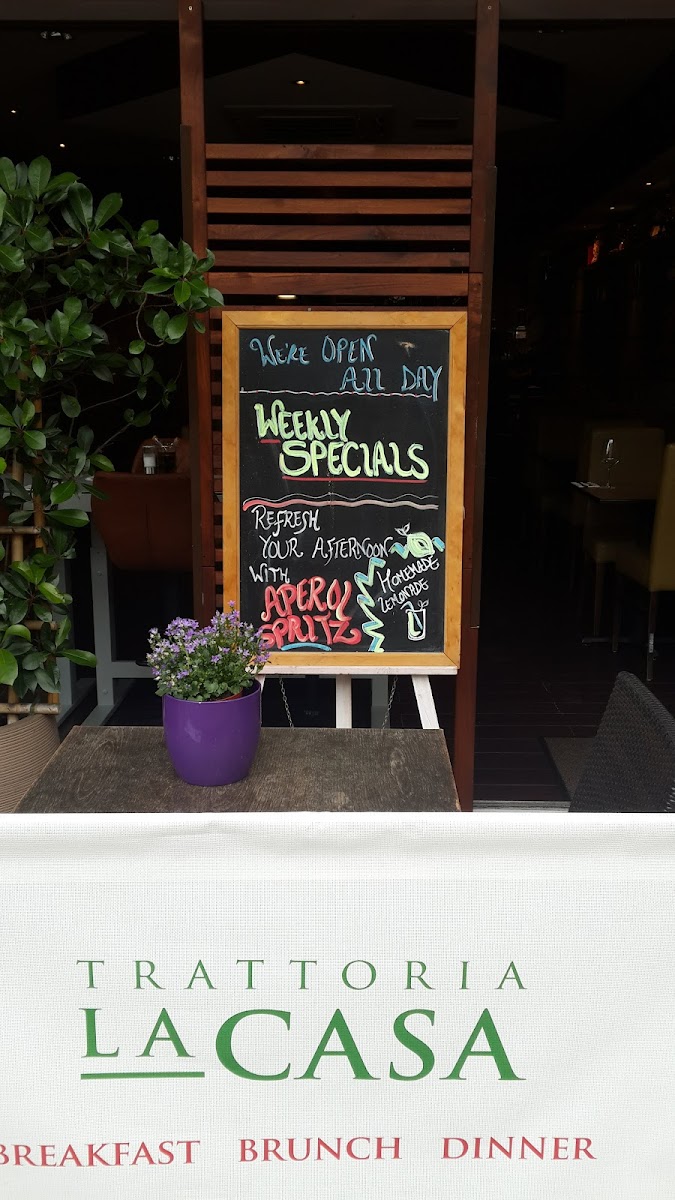 WE'RE OPEN
ALL DAY
WEEKLY
SPECIALS
REFRESH
YOUR AFTERNOON
WITH
APEROL
SPRITZ
HOMEMADE
LEMONADE
TRATTORIA
LA CASA
BREAKFAST BRUNCH DINNER